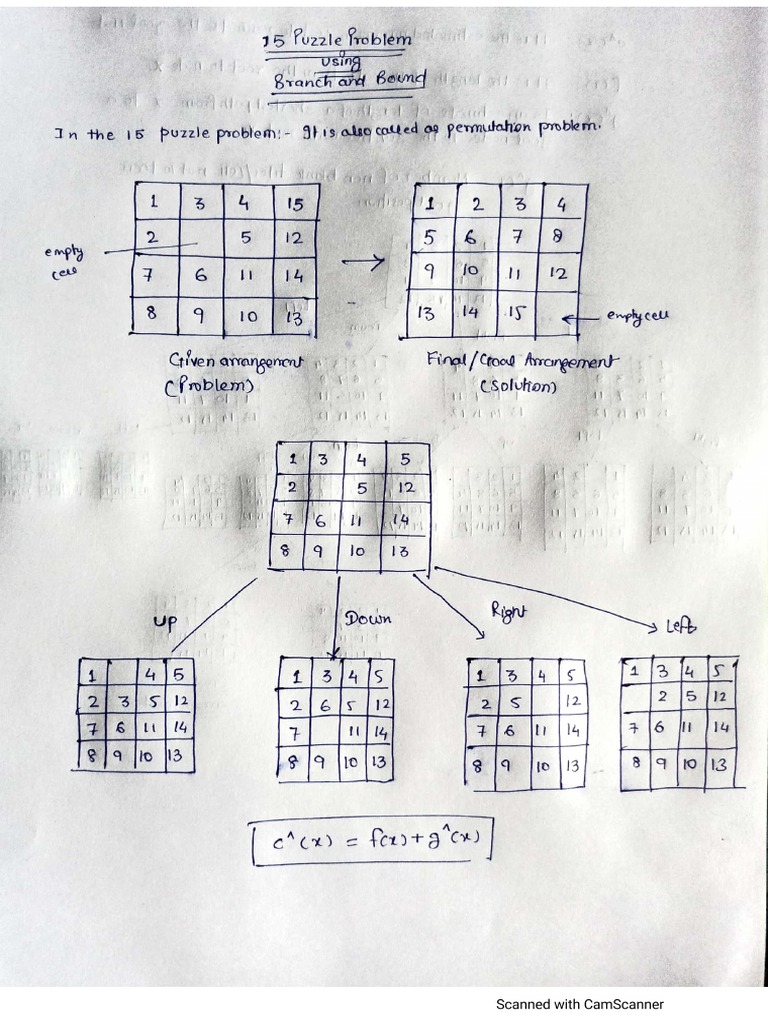 15 Puzzle Problem
using
Branch and Bound
In the 15 puzzle problem:- It is also called as permutation problem.
1 3 4 15
2 5 12
7 6 11 14
8 9 10 13
empty
cell
1 2 3 4
5 6 7 8
9 10 11 12
13 14 15
empty cell
Given arrangement
(Problem)
Final/Goal Arrangement
(Solution)
1 3 4 5
2 5 12
7 6 11 14
8 9 10 13
UP
Down
Right
Left
1 4 5
2 3 5 12
7 6 11 14
8 9 10 13
1 3 4 5
2 6 5 12
7 11 14
8 9 10 13
1 3 4 5
2 5 12
7 6 11 14
8 9 10 13
1 3 4 5
2 5 12
7 6 11 14
8 9 10 13
c^(x) = f(x) + g^(x)
Scanned with CamScanner